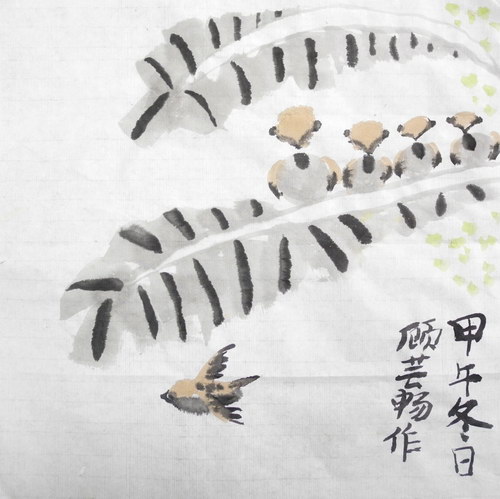 甲午冬日
顾芸畅作